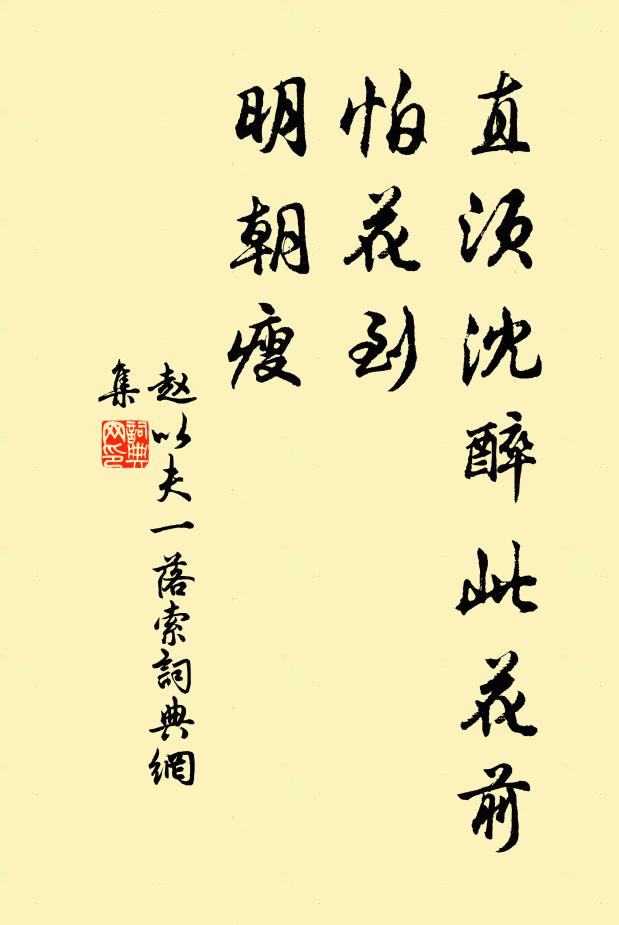 直须沈醉此花前
怕花到
明朝瘦
赵以夫一落索詞典網
集
詞典
网印